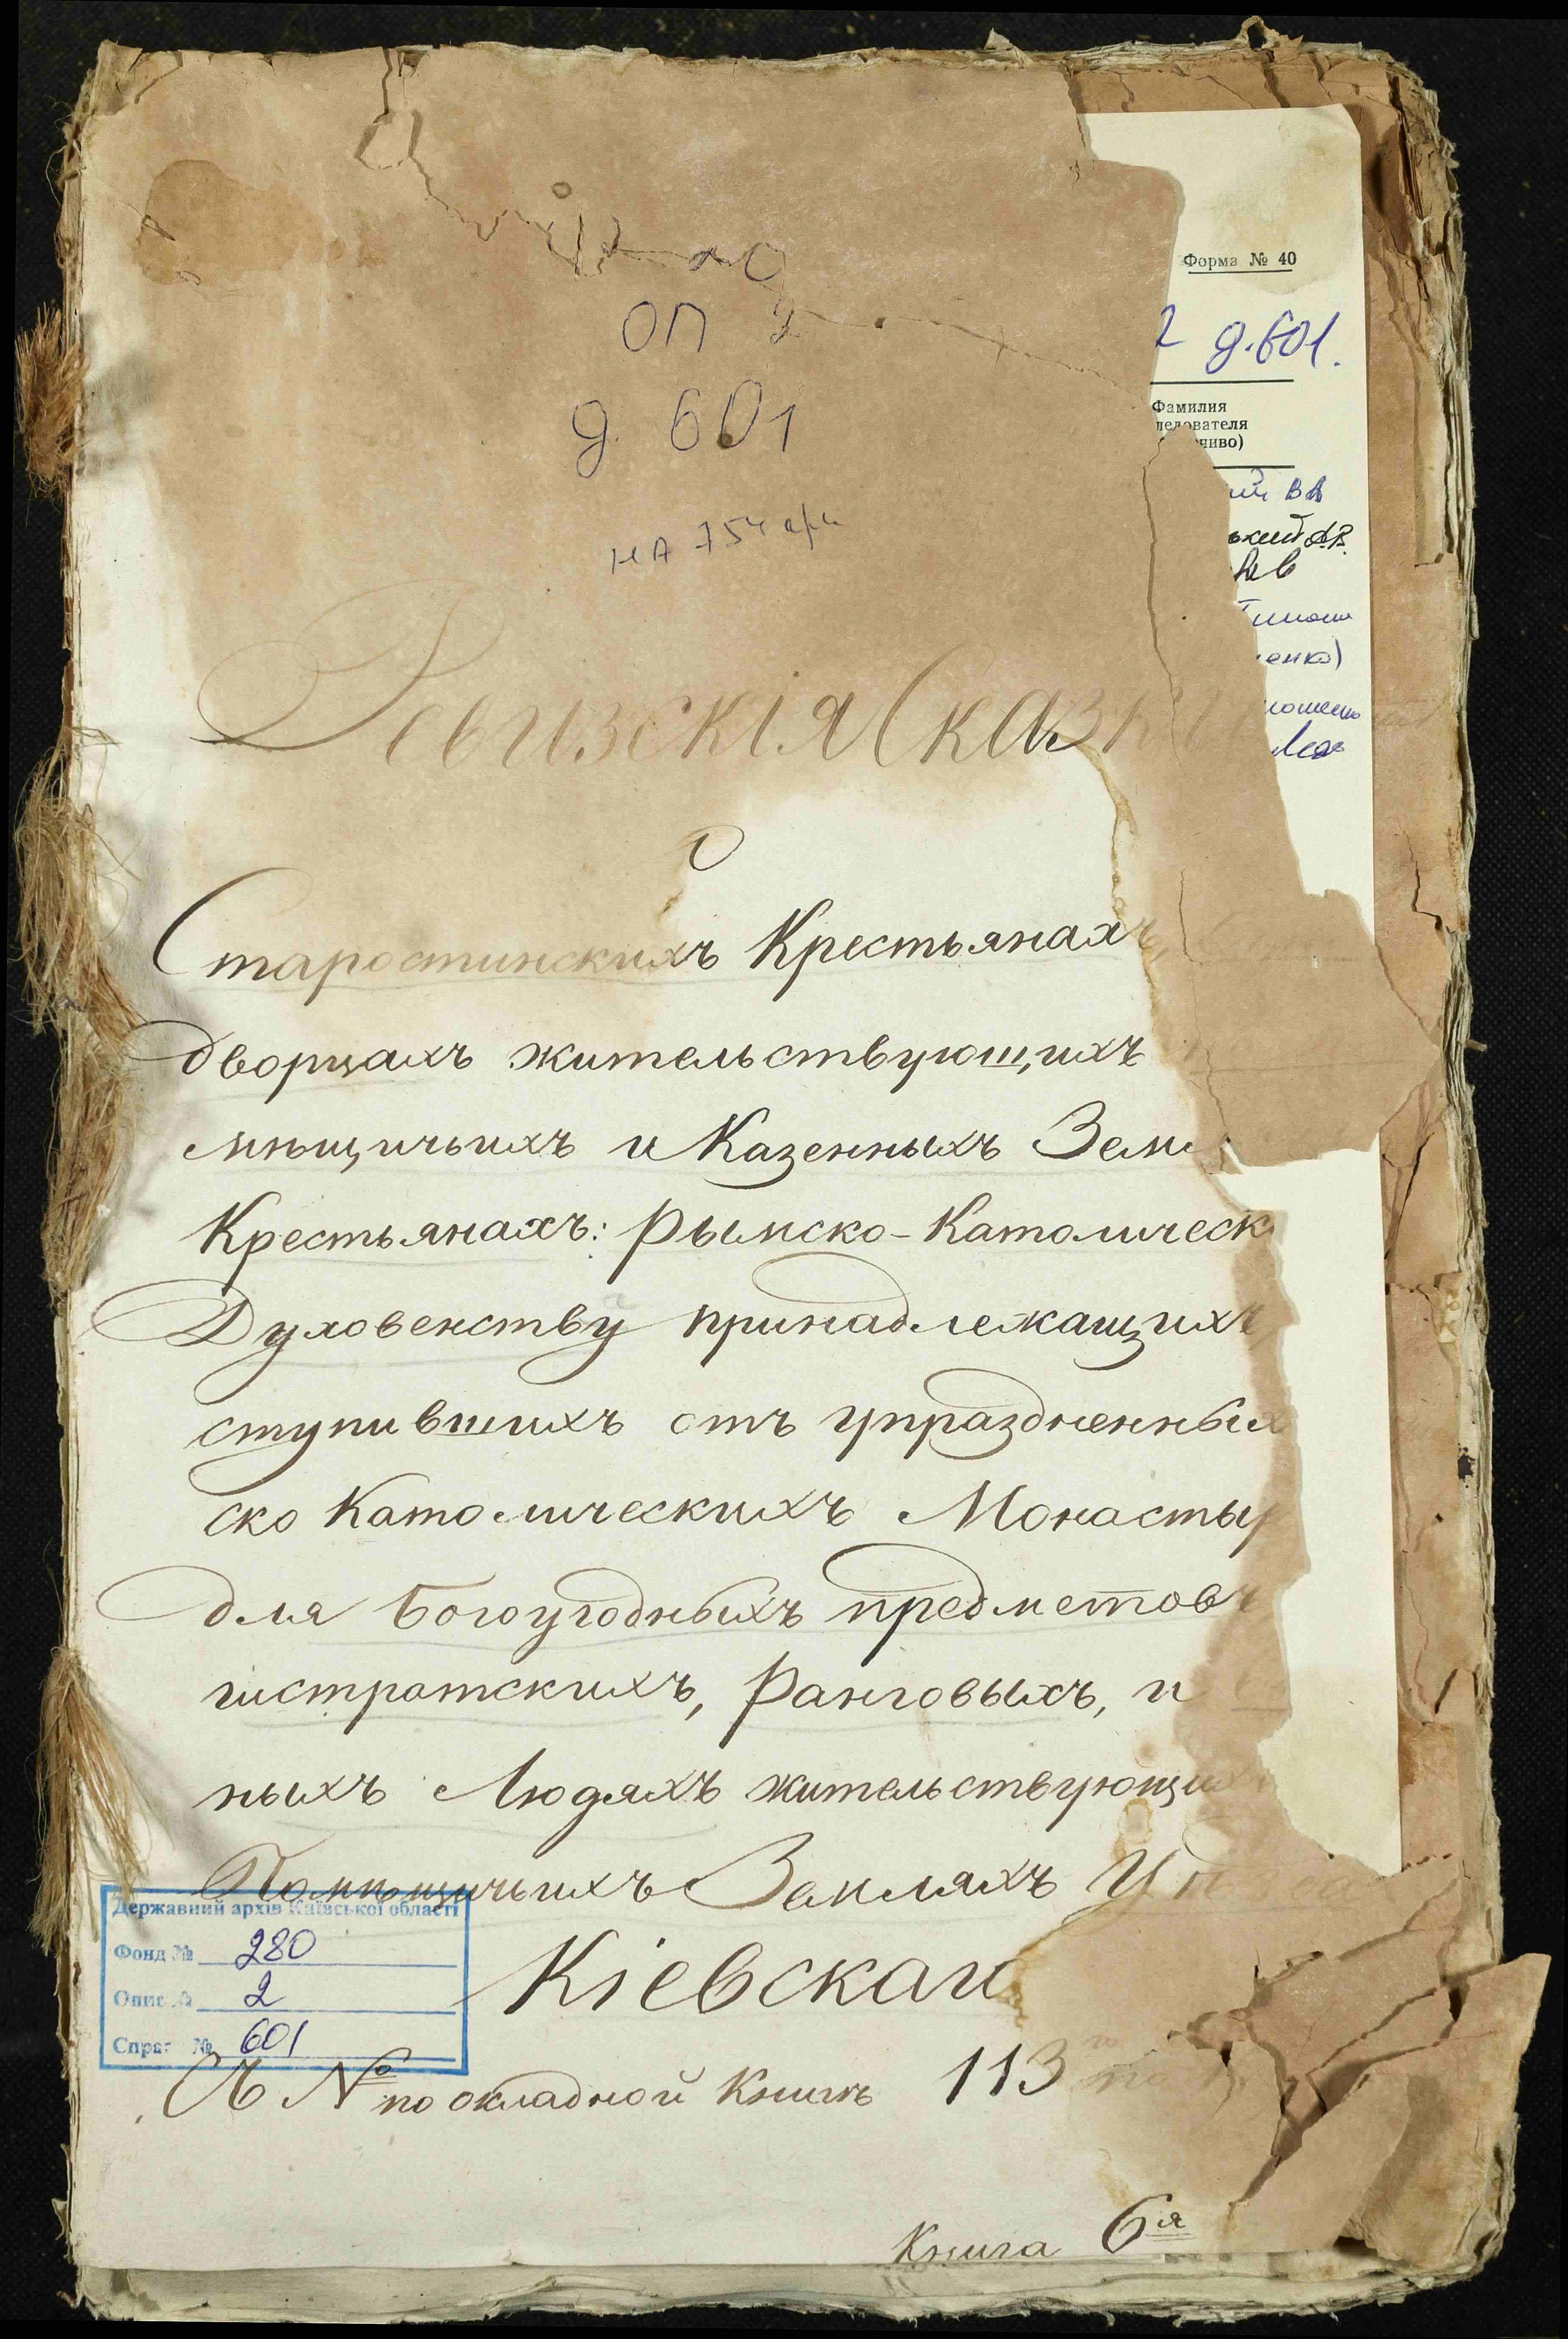 оп 2
д. 601
на 754 арк
Форма № 40
2 д.601.
Фамилия
ледователя
чиво)
Ревизскія Сказки
О
Старостинскихъ Крестьянахъ,
дворцахъ жительствующихъ
мѣщичьихъ и Казенныхъ Земл
Крестьянахъ: Рымско-Католическ
Духовенству принадлежащихъ
ступившихъ отъ упраздненных
ско Католическихъ Монастыр
для Богоугодныхъ предметовъ
гистратскихъ, Ранговыхъ, и
ныхъ Людяхъ жительствующихъ
Помѣщичьихъ Земляхъ
Державний архів Київської області
Фонд № 280
Опис № 2
Справ № 601
Кіевскаго
Съ № по окладной Книгѣ 113го
Книга 6я